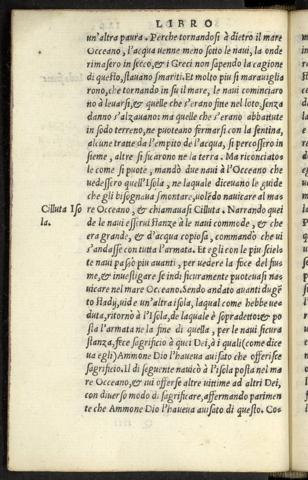 LIBRO
un'altra paura. Perche tornandosi à dietro il mare
Occeano, l'acqua uenne meno sotto le naui, la onde
rimasero in secco, & i Greci non sapendo la cagione
di questo, stauano smariti. Et molto piu si marauiglia
rono, che tornando in su il mare, le naui cominciaro
no à leuarsi, & quelle che s'erano fine nel loto, senza
danno s'alzauano: ma quelle che s'erano abbattute
in sodo terreno, ne puoteano firmarsi con la sentina,
alcune tratte da l'empito de l'acqua, si percossero in
sieme, altre si ficarono ne la terra. Ma riconciatole
come si puote, mandò due naui à l'Occeano che
uedessero quell'Isola, ne laquale diceuano le guide
che gli bisognaua smontare, uolēdo nauicare al ma
Cilluta Iso
la.
re Occeano, & chiamauasi Cilluta. Narrando quei
de le naui esserui stanze à le naui commode, & che
era grande, & d'acqua copiosa, commandò che ui
s'andasse con tutta l'armata. Et egli con le piu sciel
te naui passò piu auanti, per uedere la foce del fiu
me, & inuestigare se indi sicuramente puoteuasi na
uicare nel mare Occeano. Sendo andato auanti dugē
to stadij, uide un'altra isola, laqual come hebbe ue
duta, ritornò à l'Isola, de laquale è sopradetto & po
sta l'armata ne la fine di quella, per le naui sicura
stanza, fece sagrificio à quei Dei, à i quali (come dice
ua egli) Ammone Dio l'haueua auisato che offerisce
sagrificio. Il dì seguente nauicò à l'isola posta nel ma
re Occeano, & iui offerse altre uittime ad altri Dei,
con diuerso modo di sagrificare, affermando parimen
te che Ammone Dio l'haueua auisato di questo. Cos